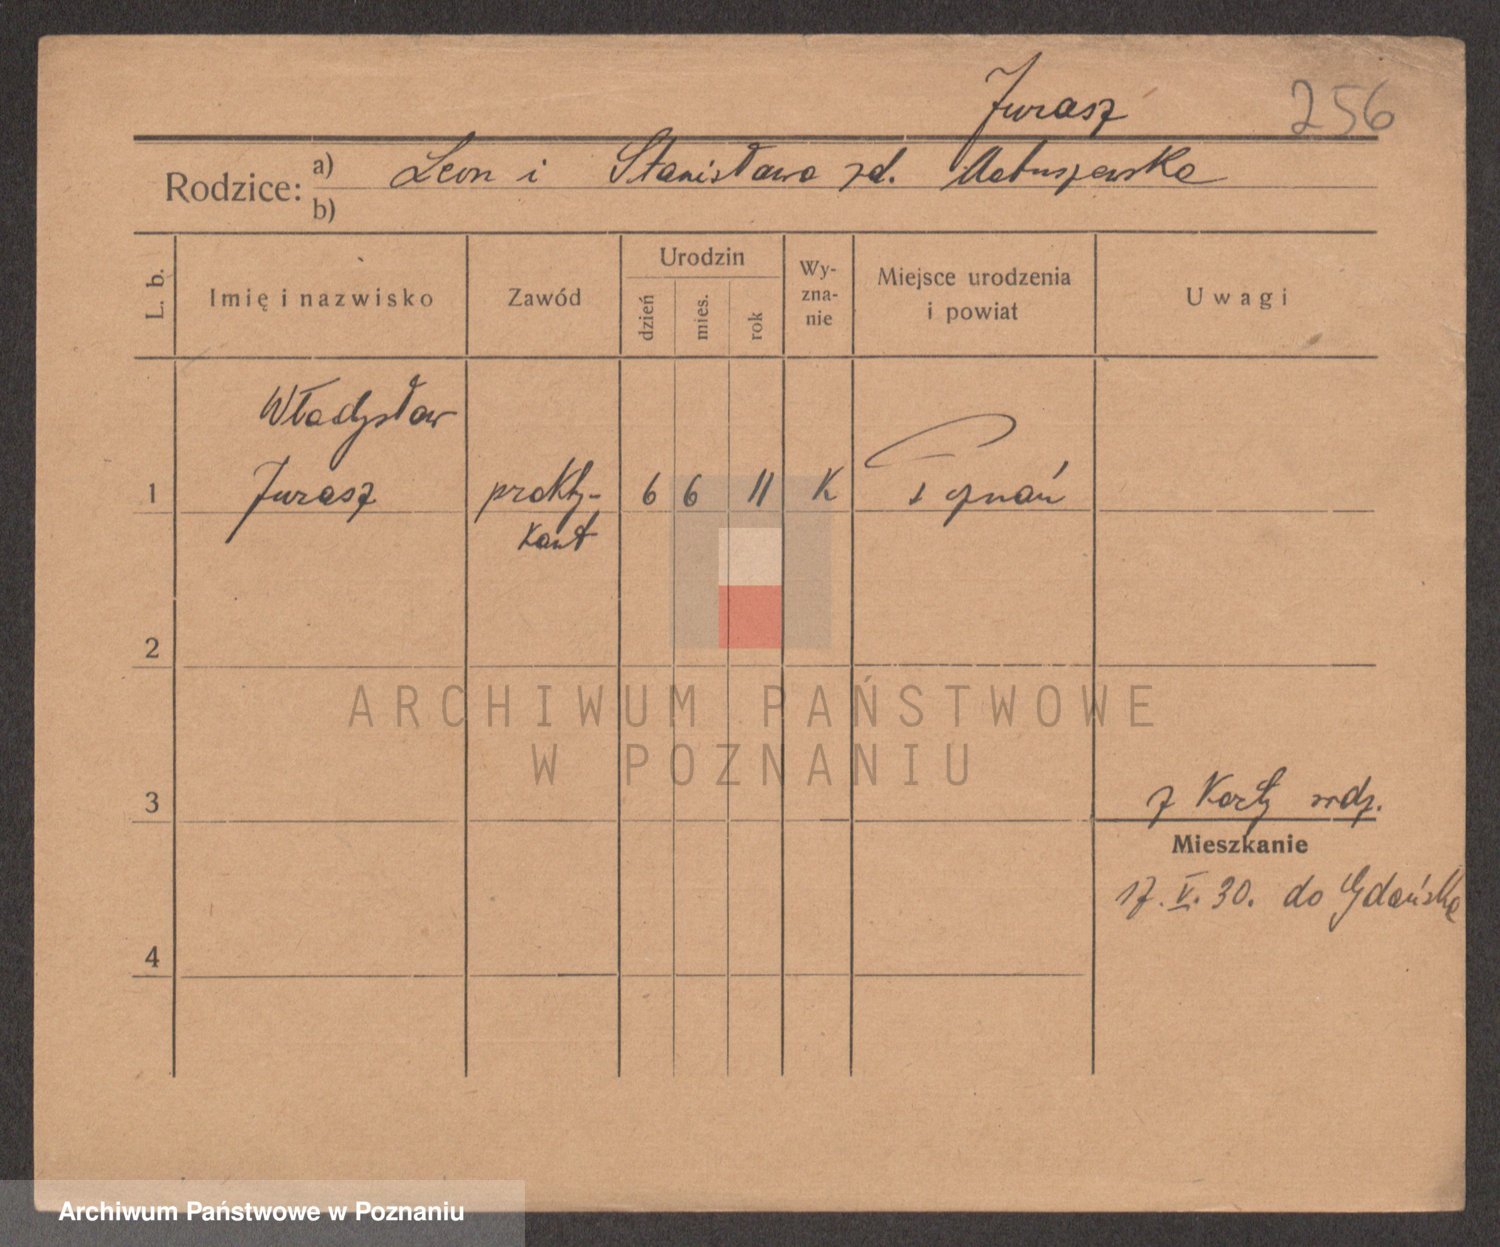 Jurasz 256
Rodzice: a) Leon i Stanisława zd. Matuszewska
b)
L. b. Imię i nazwisko Zawód Urodzin dzień mies. rok Wy-
zna-
nie Miejsce urodzenia
i powiat Uwagi
Władysław
1 Jurasz prakty- 6 6 11 K Poznań
kant
2
ARCHIWUM PAŃSTWOWE
W POZNANIU
3 z Karty rodz.
Mieszkanie
17. V. 30. do Gdańska
4
Archiwum Państwowe w Poznaniu